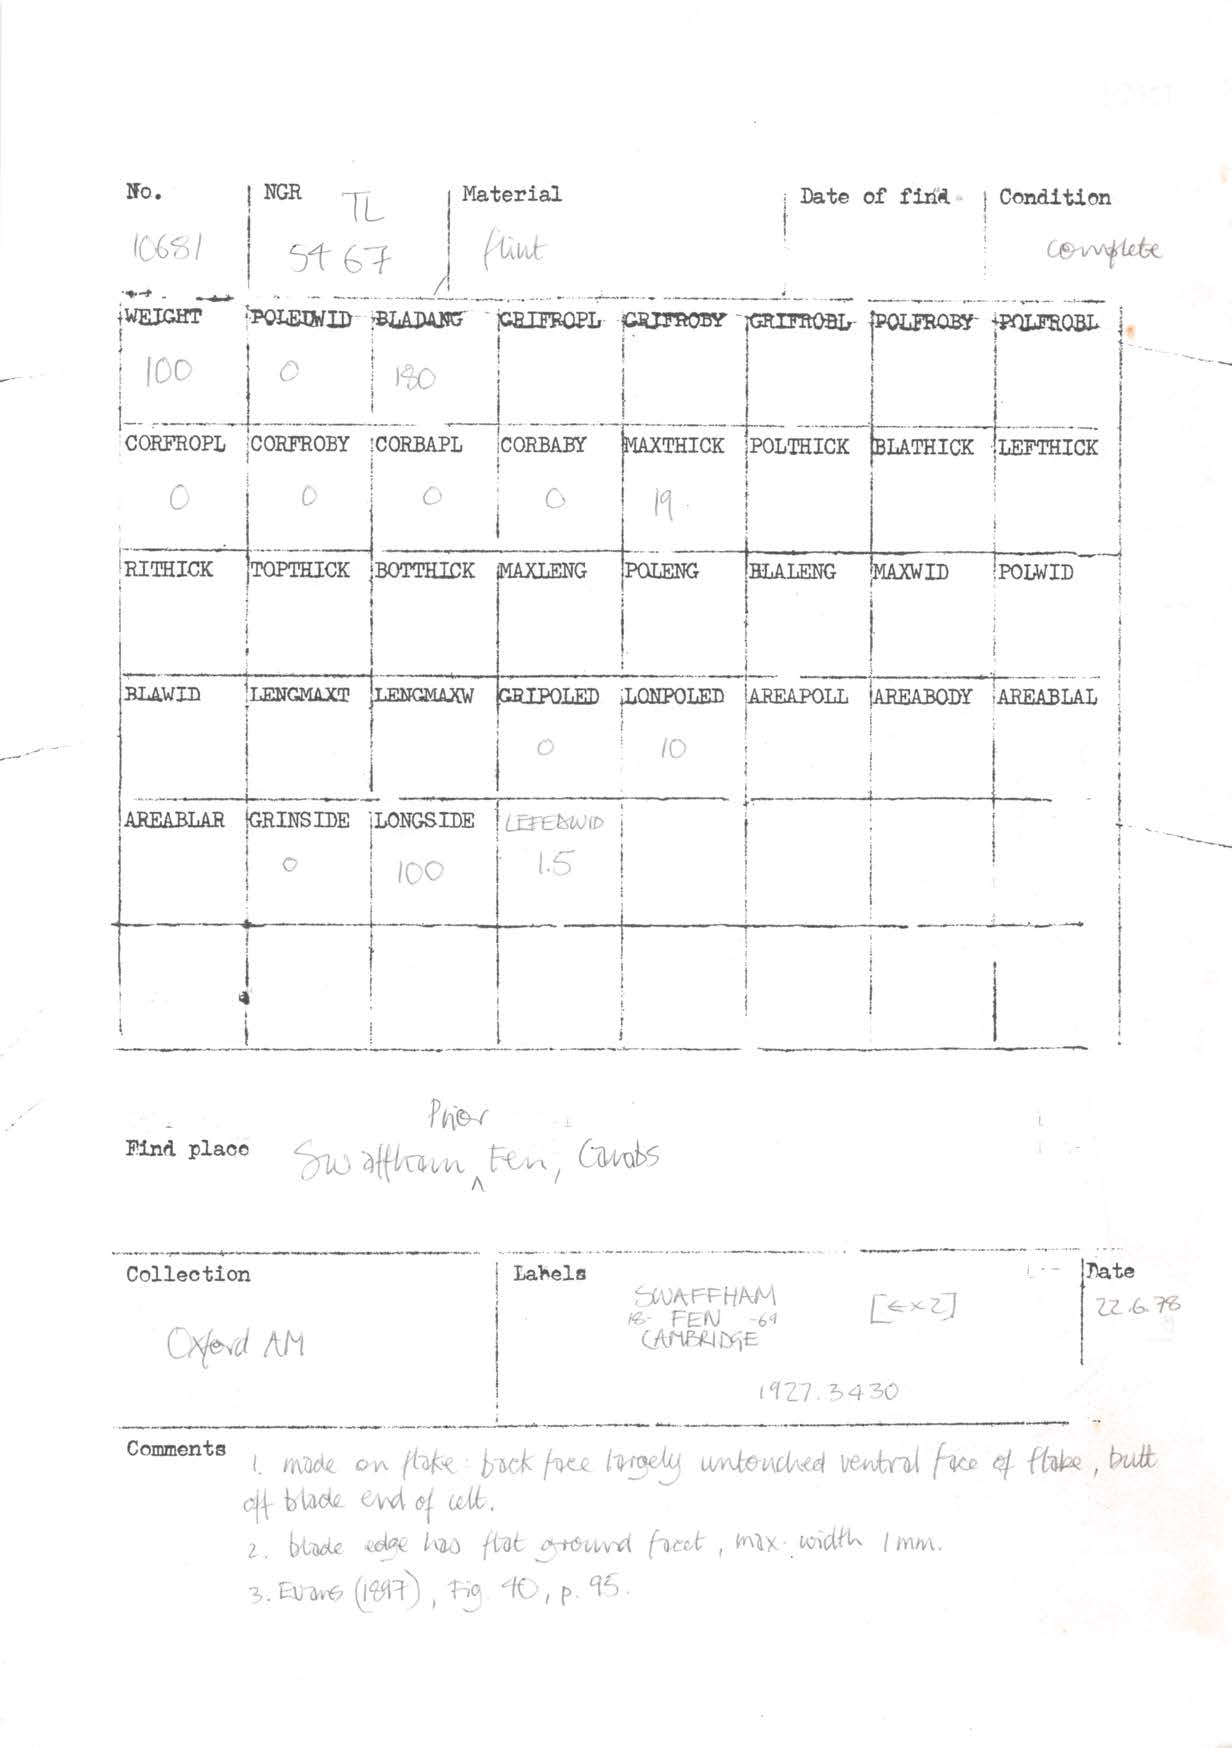 No. NGR TL Material Date of find Condition
10681 5467 flint complete
WEIGHT POLEDWID BLADANG GRIFROPL GRIFROBY GRIFROBL POLFROBY POLFROBL
100 0 180
CORFROPL CORFROBY CORBAPL CORBABY MAXTHICK POLTHICK BLATHICK LEFTHICK
0 0 0 0 19
RITHICK TOPTHICK BOTTHICK MAXLENG POLENG BLALENG MAXWID POLWID
BLAWID LENGMAXT LENGMAXW GRIPOLED LONPOLED AREAPOLL AREABODY AREABLAL
0 10
AREABLAR GRINSIDE LONGSIDE LEFEDWID
0 100 1.5
Prior
Find place Swaffham ^ Fen, Cambs
Collection Labels Date
SWAFFHAM [Ex2] 22.6.78
18- FEN -69
Oxford AM CAMBRIDGE
1927.3430
Comments 1. made on flake: back face largely untouched ventral face of flake, butt
off blade end of celt.
2. blade edge has flat ground facet, max. width 1mm.
3. Evans (1897), Fig. 40, p. 95.